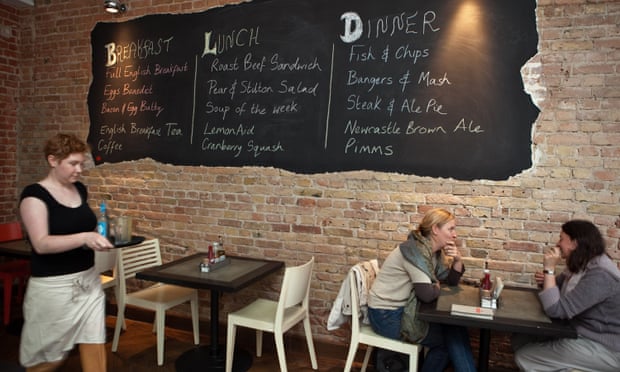 Breakfast
Full English Breakfast
Eggs Benedict
Bacon & Egg Butty
English Breakfast Tea
Coffee
Lunch
Roast Beef Sandwich
Pear & Stilton Salad
Soup of the week
LemonAid
Cranberry Squash
Dinner
Fish & Chips
Bangers & Mash
Steak & Ale Pie
Newcastle Brown Ale
Pimms